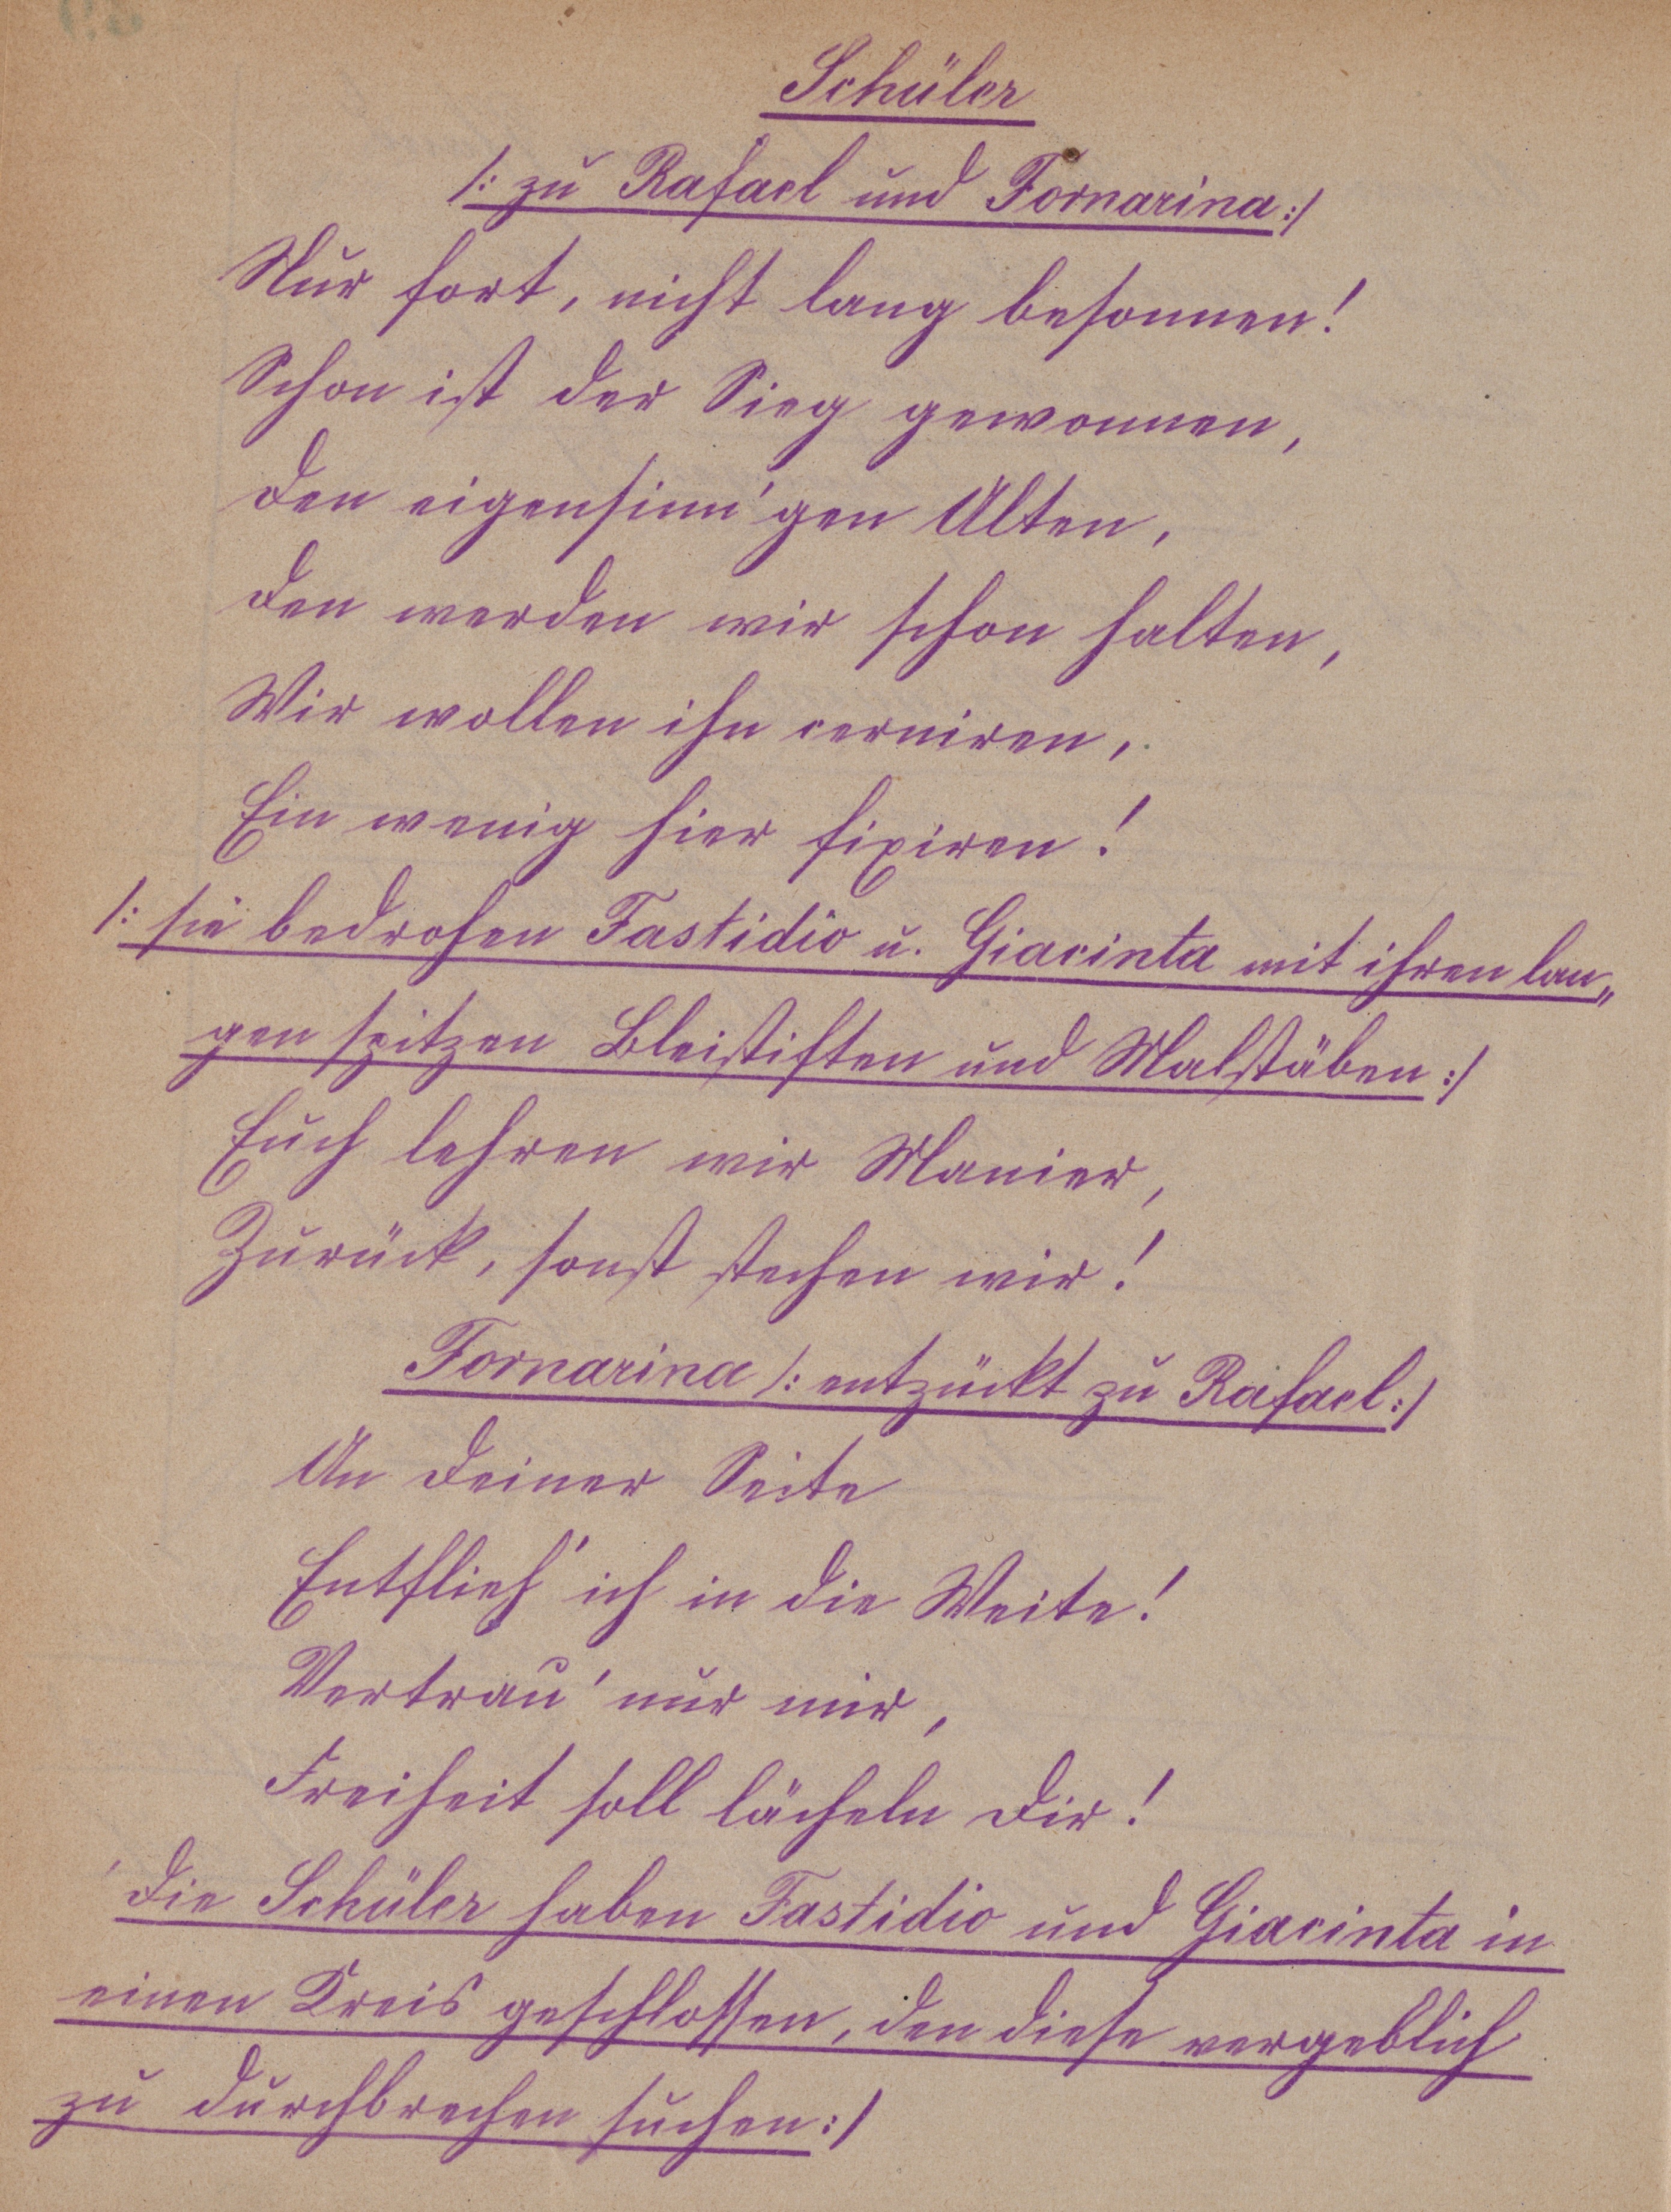 Schüler
/: zu Rafael und Fornarina :/
Nur fort, nicht lang besonnen!
Schon ist der Sieg gewonnen,
den eigensinn'gen Alten,
den werden wir schon halten,
Wir wollen ihn cerniren,
Ein wenig hier fixiren!
/: sie bedrohen Fastidio u. Giacinta mit ihren lan„
gen spitzen Bleistiften und Malstäben :/
Euch lehren wir Manier,
Zurück, sonst stechen wir!
Fornarina /: entzückt zu Rafael :/
An deiner Seite
Entflieh' ich in die Weite!
Vertrau' nur mir,
Freiheit soll lächeln dir!
die Schüler haben Fastidio und Giacinta in
einen Kreis geschlossen, den diese vergeblich
zu durchbrechen suchen :/